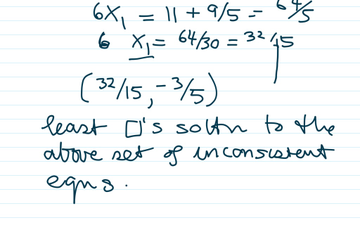 6X₁ = 11 + 9/5 = 64/5
6 X₁ = 64/30 = 32/15
(32/15, -3/5)
least □'s soltn to the
above set of inconsistent
eqns.